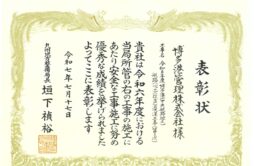 表彰状
博多港管理株式会社様
貴社は令和六年度における
当局所管の右の工事の施工に
あたり安全な工事施工に努め
優秀な成績を挙げられました
よってここに表彰します
令和七年七月十七日
九州地方整備局長
垣下禎裕